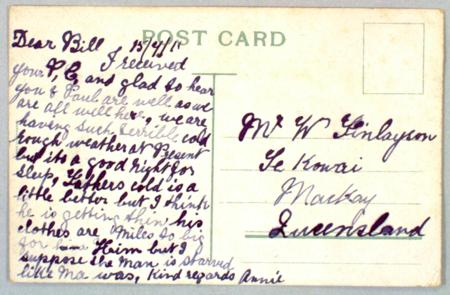 POST CARD
Dear Bill 15/4/11
I received
your P, C, and glad to hear
you & Paul are well as we
are all well here, we are
having such terrible cold
rough weather at Present
but its a good night for
sleep, Fathers cold is a
little better but I think
he is getting thin his
clothes are miles to big
for Heim but I
suppose the man is starved
like Ma was, Kind regards Annie
Mr W Finlayson
Te Kowai
Mackay
Queensland